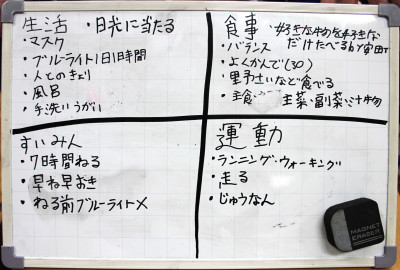 生活 ・日光に当たる
・マスク
・ブルーライト1日1時間
・人とのきょり
・風呂
・手洗いうがい
食事 ・好きな物を好きな
だけたべるby安田T
・バランス
・よくかんで(30)
・野さいなど食べる
・主食、主菜・副菜・汁物
すいみん
・7時間ねる
・早ね早おき
・ねる前ブルーライト×
運動
・ランニング・ウォーキング
・走る
・じゅうなん
MAGNET
ERASER